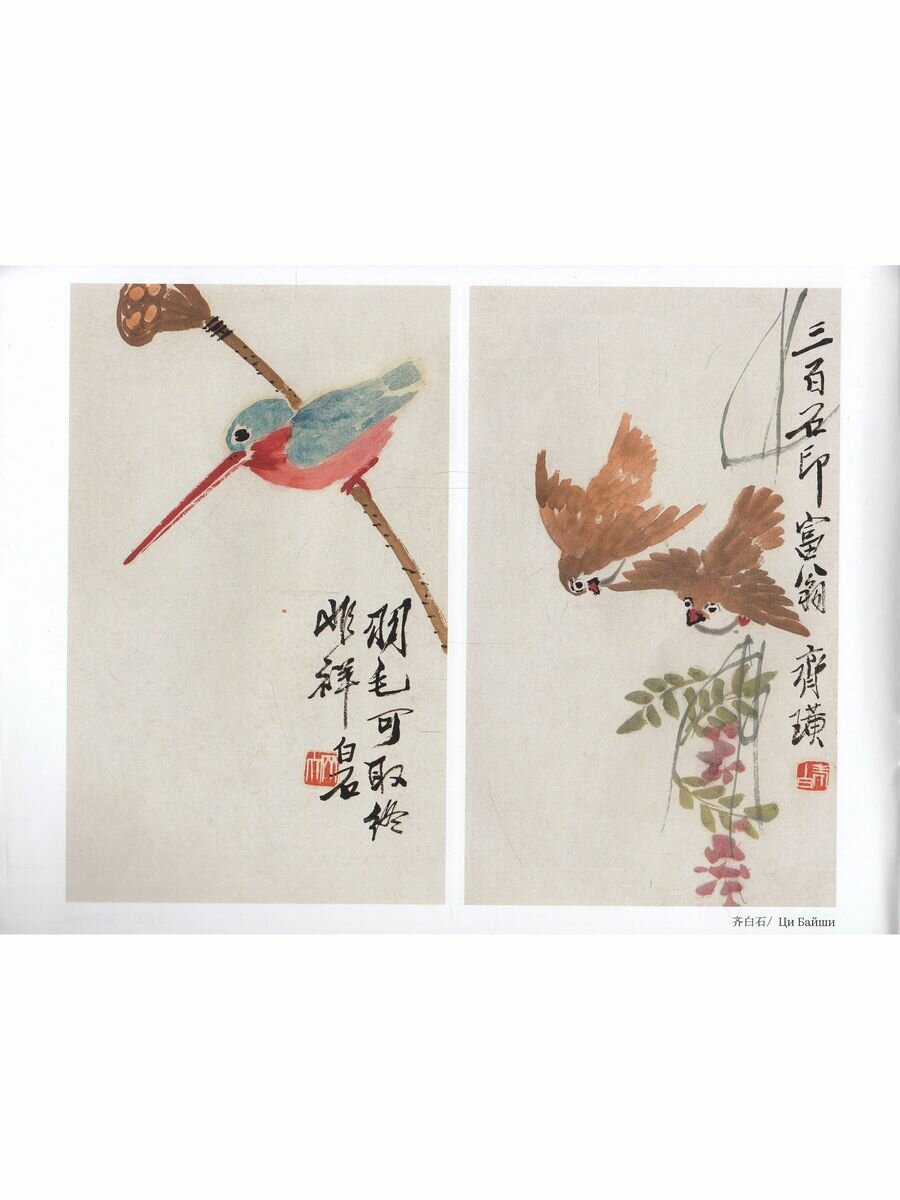 羽毛可取終
非祥
白石
三百石印富翁 齊璜
齐白石/ Ци Байши